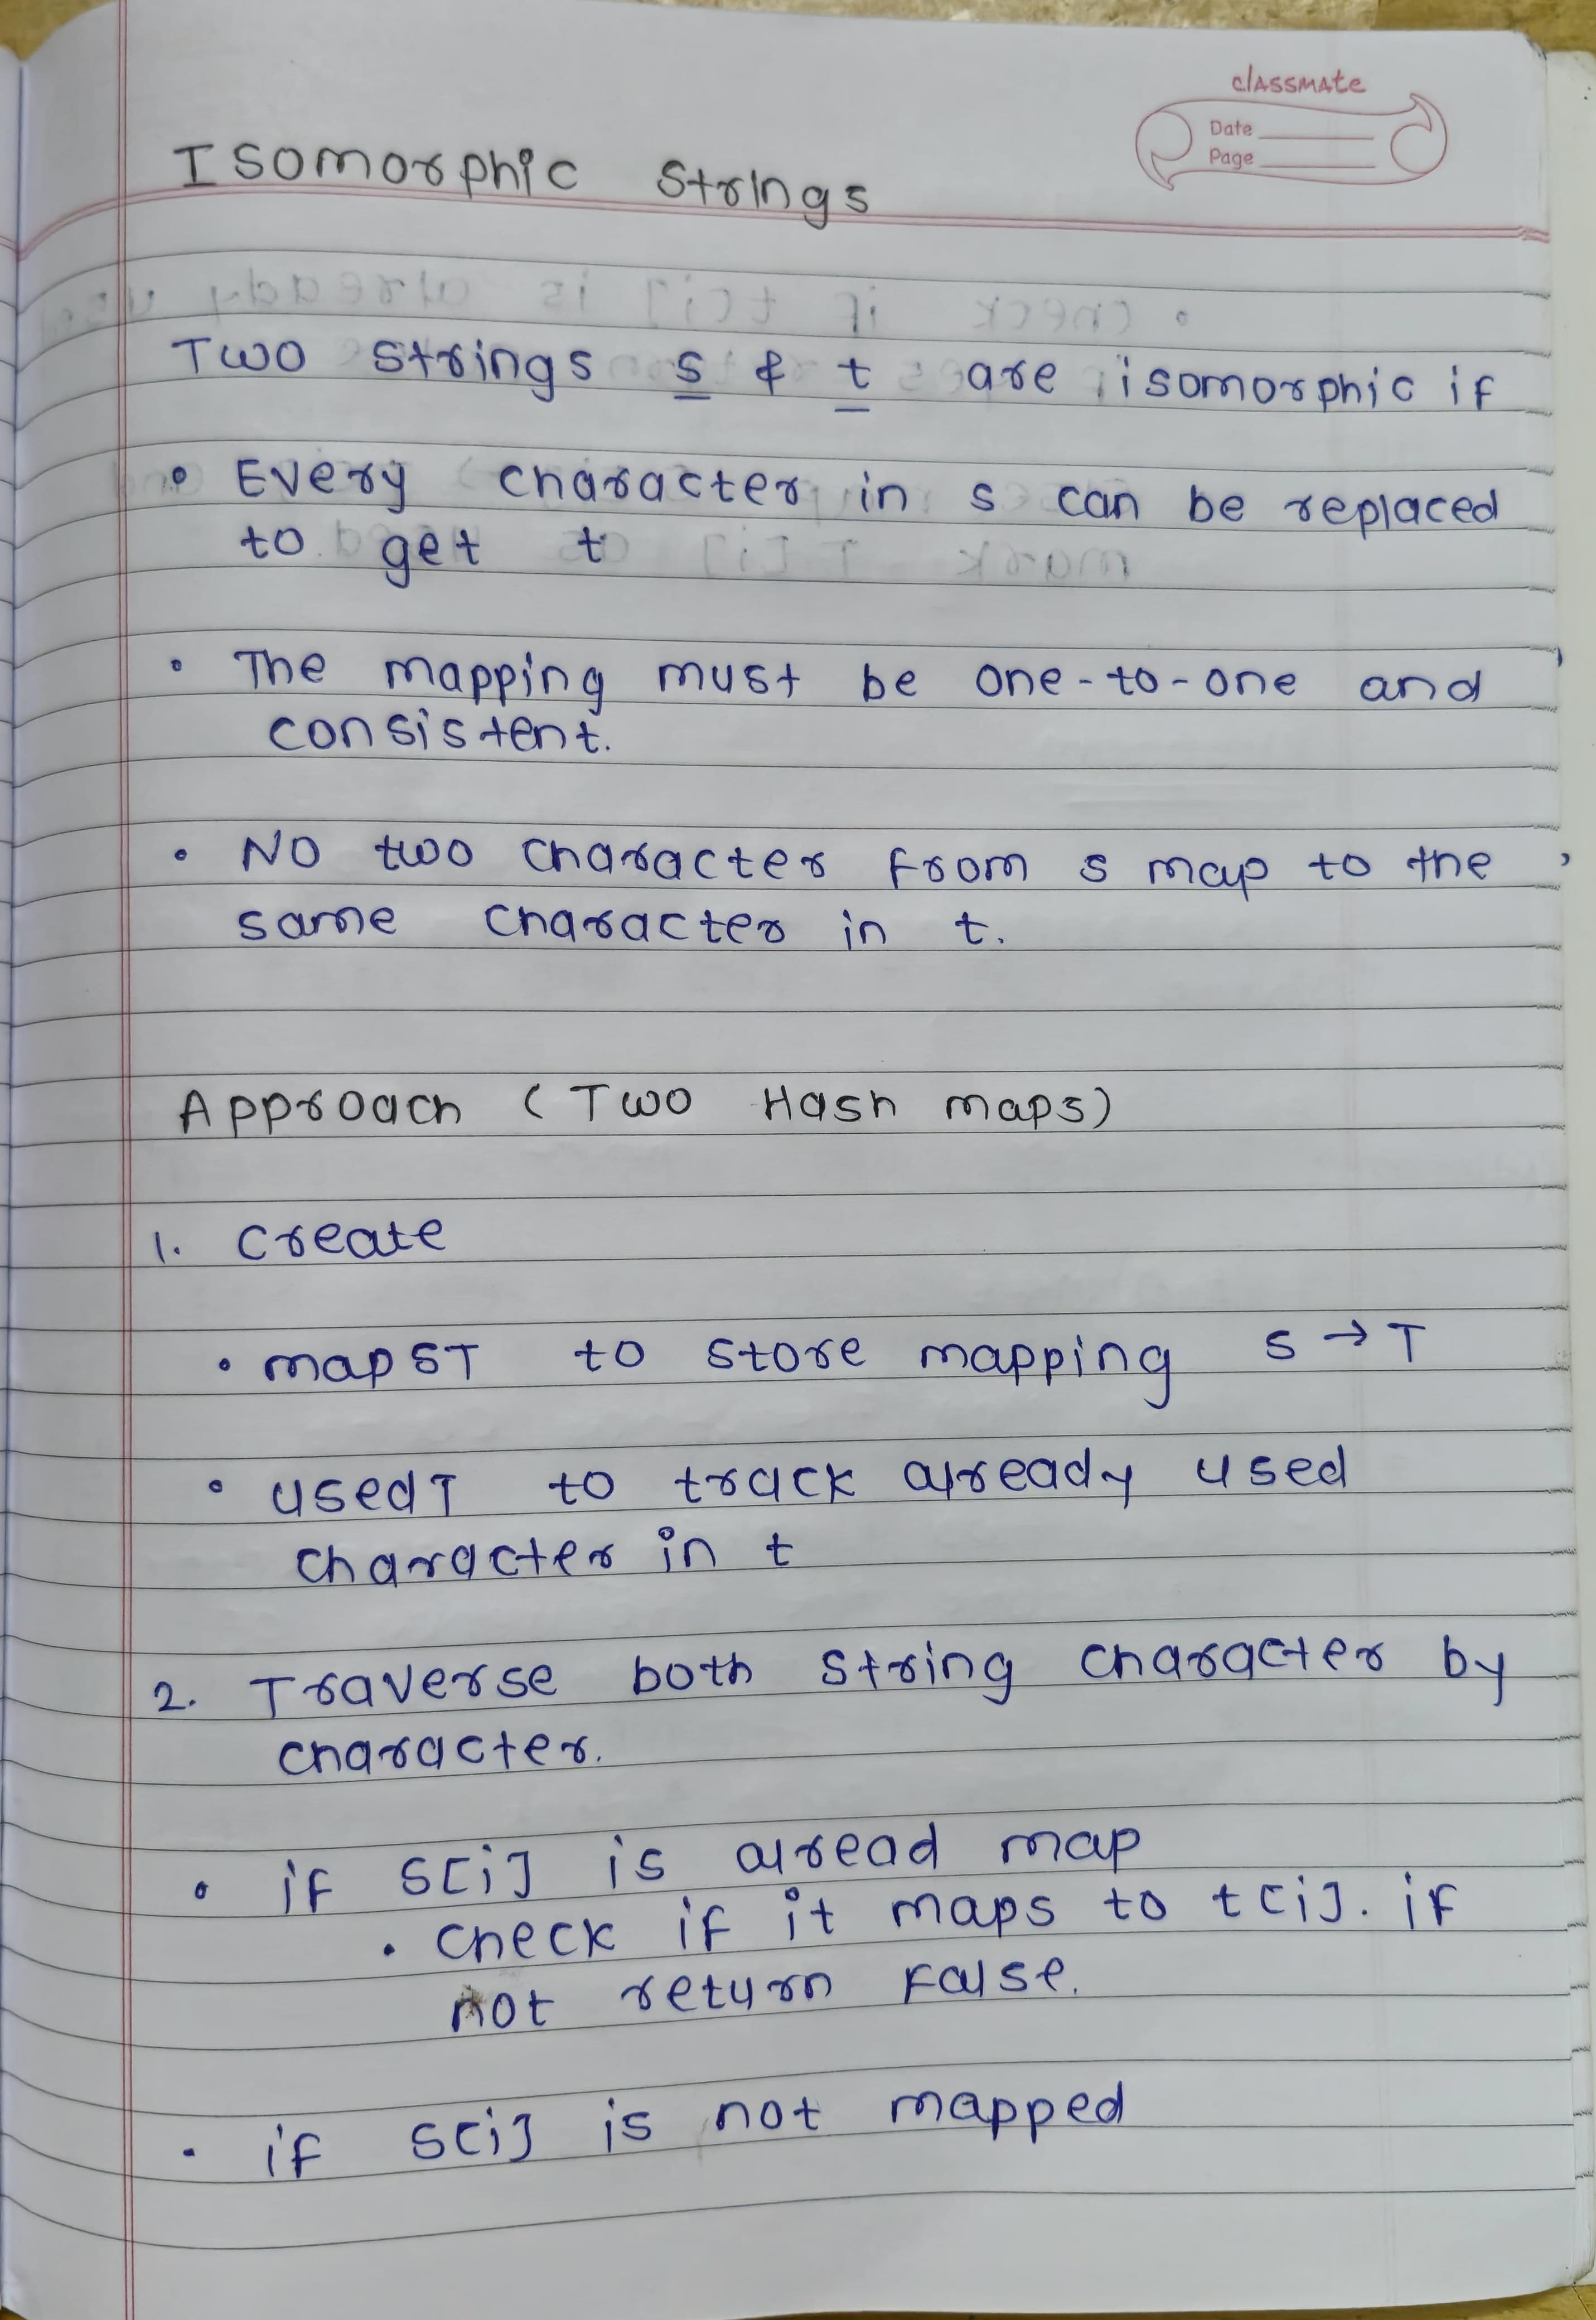 classmate
Date
Page
Isomorphic Strings
Two strings s & t are isomorphic if
• Every character in s can be replaced
to get t
• The mapping must be one-to-one and
consistent.
• No two character from s map to the
same character in t.
Approach (Two Hash maps)
1. Create
• mapST to store mapping S → T
• usedT to track already used
character in t
2. Traverse both string character by
character.
• if S[i] is alread map
• check if it maps to t[i]. if
not return False.
• if S[i] is not mapped